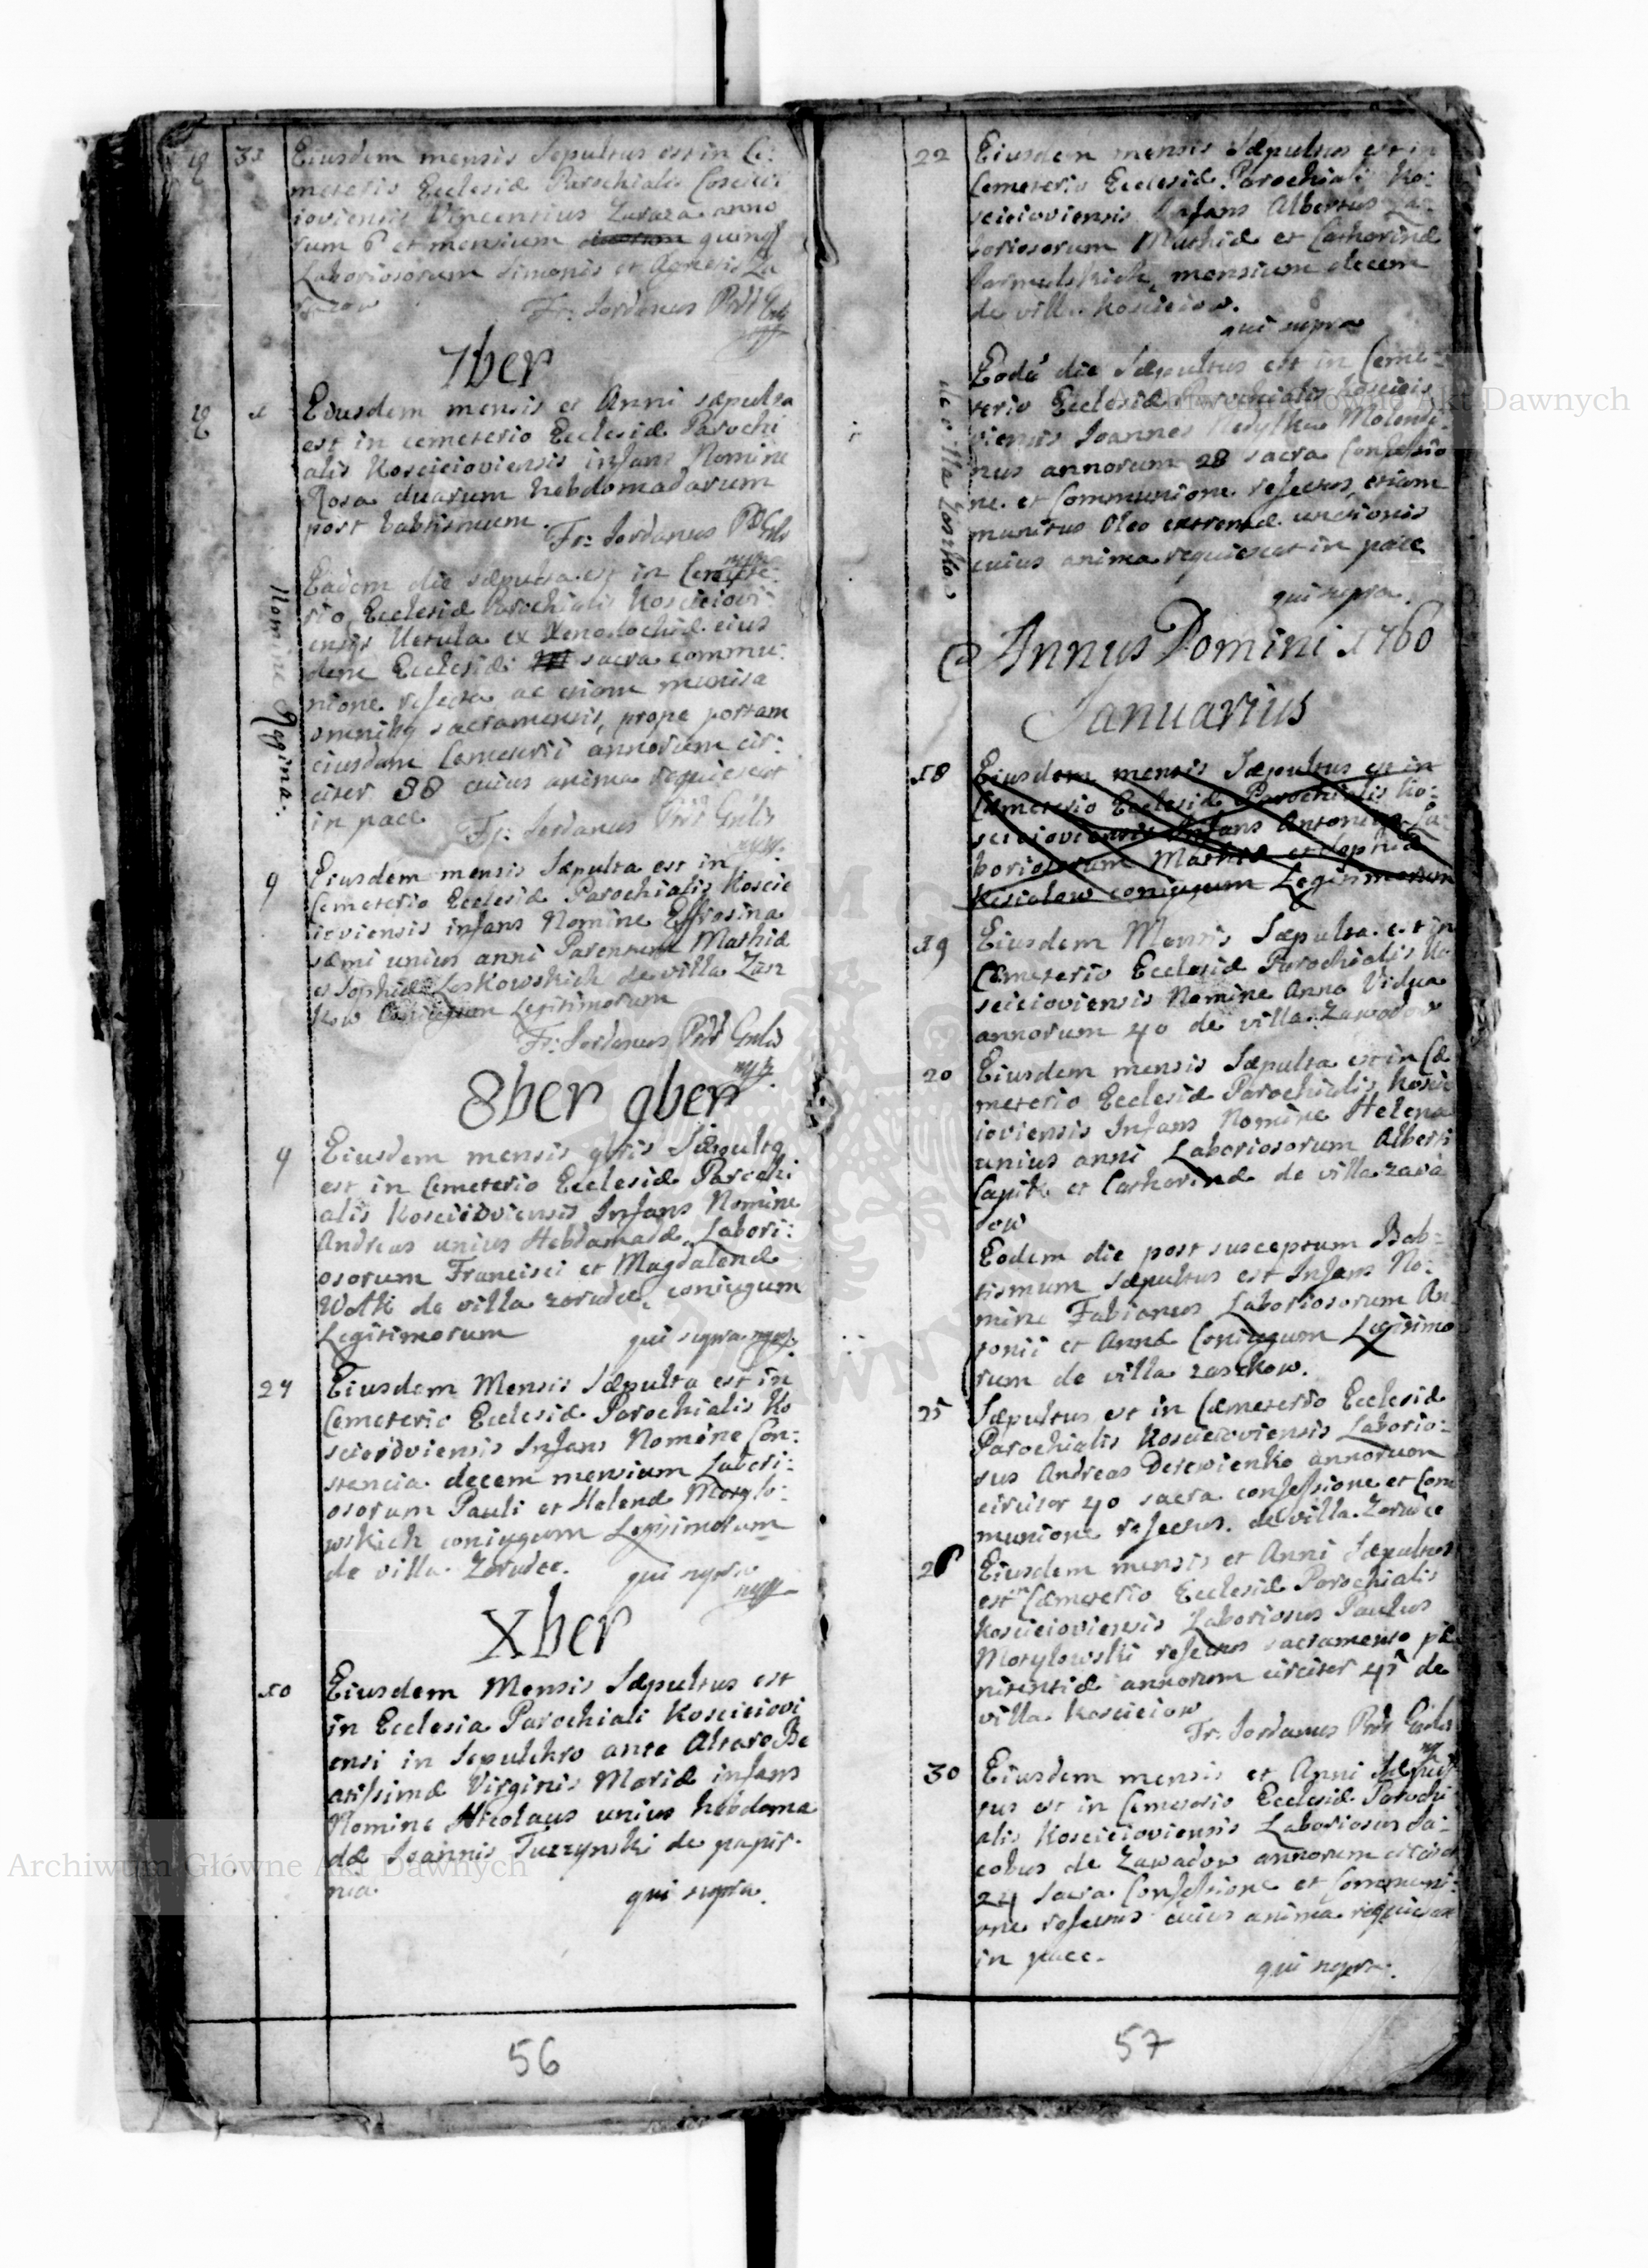 31 Eiusdem mensis Sepultus est in Ce:
meterio Ecclesiæ Parochialis Koscici
ioviensis Vincentius Zaraza anno
rum 6 et mensium quinq
Laboriosorum Simonis et Agnetis Za
razow
Fr: Jordanus
7ber
1 Eiusdem mensis et Anni sæpulta
est in cemeterio Ecclesiæ Parochi
alis Koscieioviensis infans Nomine
Rosa duarum hebdomadarum
post babtismum.
Fr: Jordanus
Eadem die sæpulta est in Cemete:
rio Ecclesiæ Parochialis Koscieiovi
ensis Uetula ex Xenodochiæ eius
dem Ecclesiæ sacra commu:
nione refecta ac etiam munita
omnibq sacramentis, prope portam
eiusdem Cemeterii annorum cir:
citer 88 cuius anima requiescat
in pace
Fr: Jordanus
Nomine Reggina.
9 Eiusdem mensis Sæpulta est in
Cemeterio Ecclesiæ Parochialis Koscie
ioviensis infans Nomine Effrosina
sæmi unius anni Parentum Mathiæ
et Sophiæ Laskowskich de villa Zasz
kow Coniugum Legitimorum
Fr: Jordanus
8ber 9ber
4 Eiusdem mensis 9bris Sæpulta
est in Cemeterio Ecclesiæ Parochi
alis Koscieioviensis Infans Nomine
Andreas unius Hebdomadæ Labori:
osorum Francisci et Magdalenæ
Wolk de villa zorudce, coniugum
Legitimorum qui supra
24 Eiusdem Mensis Sæpulta est in
Cemeterio Ecclesiæ Parochialis Ko
scieioviensis Infans Nomine Con:
stencia decem mensium Labori:
osorum Pauli et Helenæ Motylo:
wskich coniugum Legitimorum
de villa Zorudce. qui supra
Xber
10 Eiusdem Mensis Sæpultus est
in Ecclesia Parochiali Koscieiovi
ensi in Sepulchro ante Altare Be
atissimæ Virginis Mariæ infans
Nomine Nicolaus unius hebdoma
dæ Joannis Tuczynski de papir:
nia. qui supra.
56
22 Eiusdem mensis Sæpultus est in
Cemeterio Ecclesiæ Parochialis Ko:
scieioviensis Infans Albertus La:
boriosorum Mathiæ et Catharinæ
mensium decem
de villa Koscieiow.
qui supra
Eode die Sæpultus est in Ceme:
terio Ecclesiæ Parochialis Koscieio
viensis Joannes Molendi
nus annorum 28 sacra Confessio
ne et Communione refectus, etiam
munitus Oleo extremæ unctionis
cuius anima requiescat in pace
qui supra.
de villa Zaszkow
Annus Domini 1760
Januarius
18 Eiusdem mensis Sæpultus est in
Cæmeterio Ecclesiæ Parochialis Ko:
scieioviensis Infans Antoni La:
boriosorum Mathiæ et Sophiæ
Kisielow coniugum Legitimorum
19 Eiusdem Mensis Sæpulta est in
Cæmeterio Ecclesiæ Parochialis Ko
scieioviensis Nomine Anna Vidua
annorum 40 de villa Zawadow
20 Eiusdem mensis Sæpulta est in Cæ
meterio Ecclesiæ Parochialis Koscie
ioviensis Infans Nomine Helena
unius anni Laboriosorum Alberti
Capik et Catharinæ de villa zawa
dow
Eodem die post susceptum Bab=
tismum sæpultus est Infans No:
mine Fabianus Laboriosorum An
tonii et Annæ Coniugum Legitimo
rum de villa zaschow.
25 Sæpultus est in Cæmeterio Ecclesiæ
Parochialis Koscieioviensis Laborio:
sus Andreas Derewienko annorum
circiter 40 sacra confessione et Com
munione refectus. de villa Zorudce
26 Eiusdem mensis et Anni Sæpultus
est in Cæmeterio Ecclesiæ Parochialis
Koscieioviensis Laboriosus Paulus
Motylowski refectus sacramento pæ
nitentiæ annorum circiter 45 de
villa Koscieiow
Fr: Jordanus
30 Eiusdem mensis et Anni Sæpul
tus est in Cemeterio Ecclesiæ Parochi
alis Koscieioviensis Laboriosus Ja:
cobus de Zawadow annorum circiter
24 sacra Confessione et Communi:
one refectus cuius anima requiescat
in pace.
qui supra.
57
Archiwum Główne Akt Dawnych
Archiwum Główne Akt Dawnych